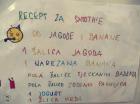 RECEPT ZA SMOOTHIE
OD JAGODE I BANANE
1 ŠALICA JAGODA
NAREZANA BANANA
POLA ŠALICE
POLA ŠALICE
1 JOGURT
1 ŽLICA MEDA